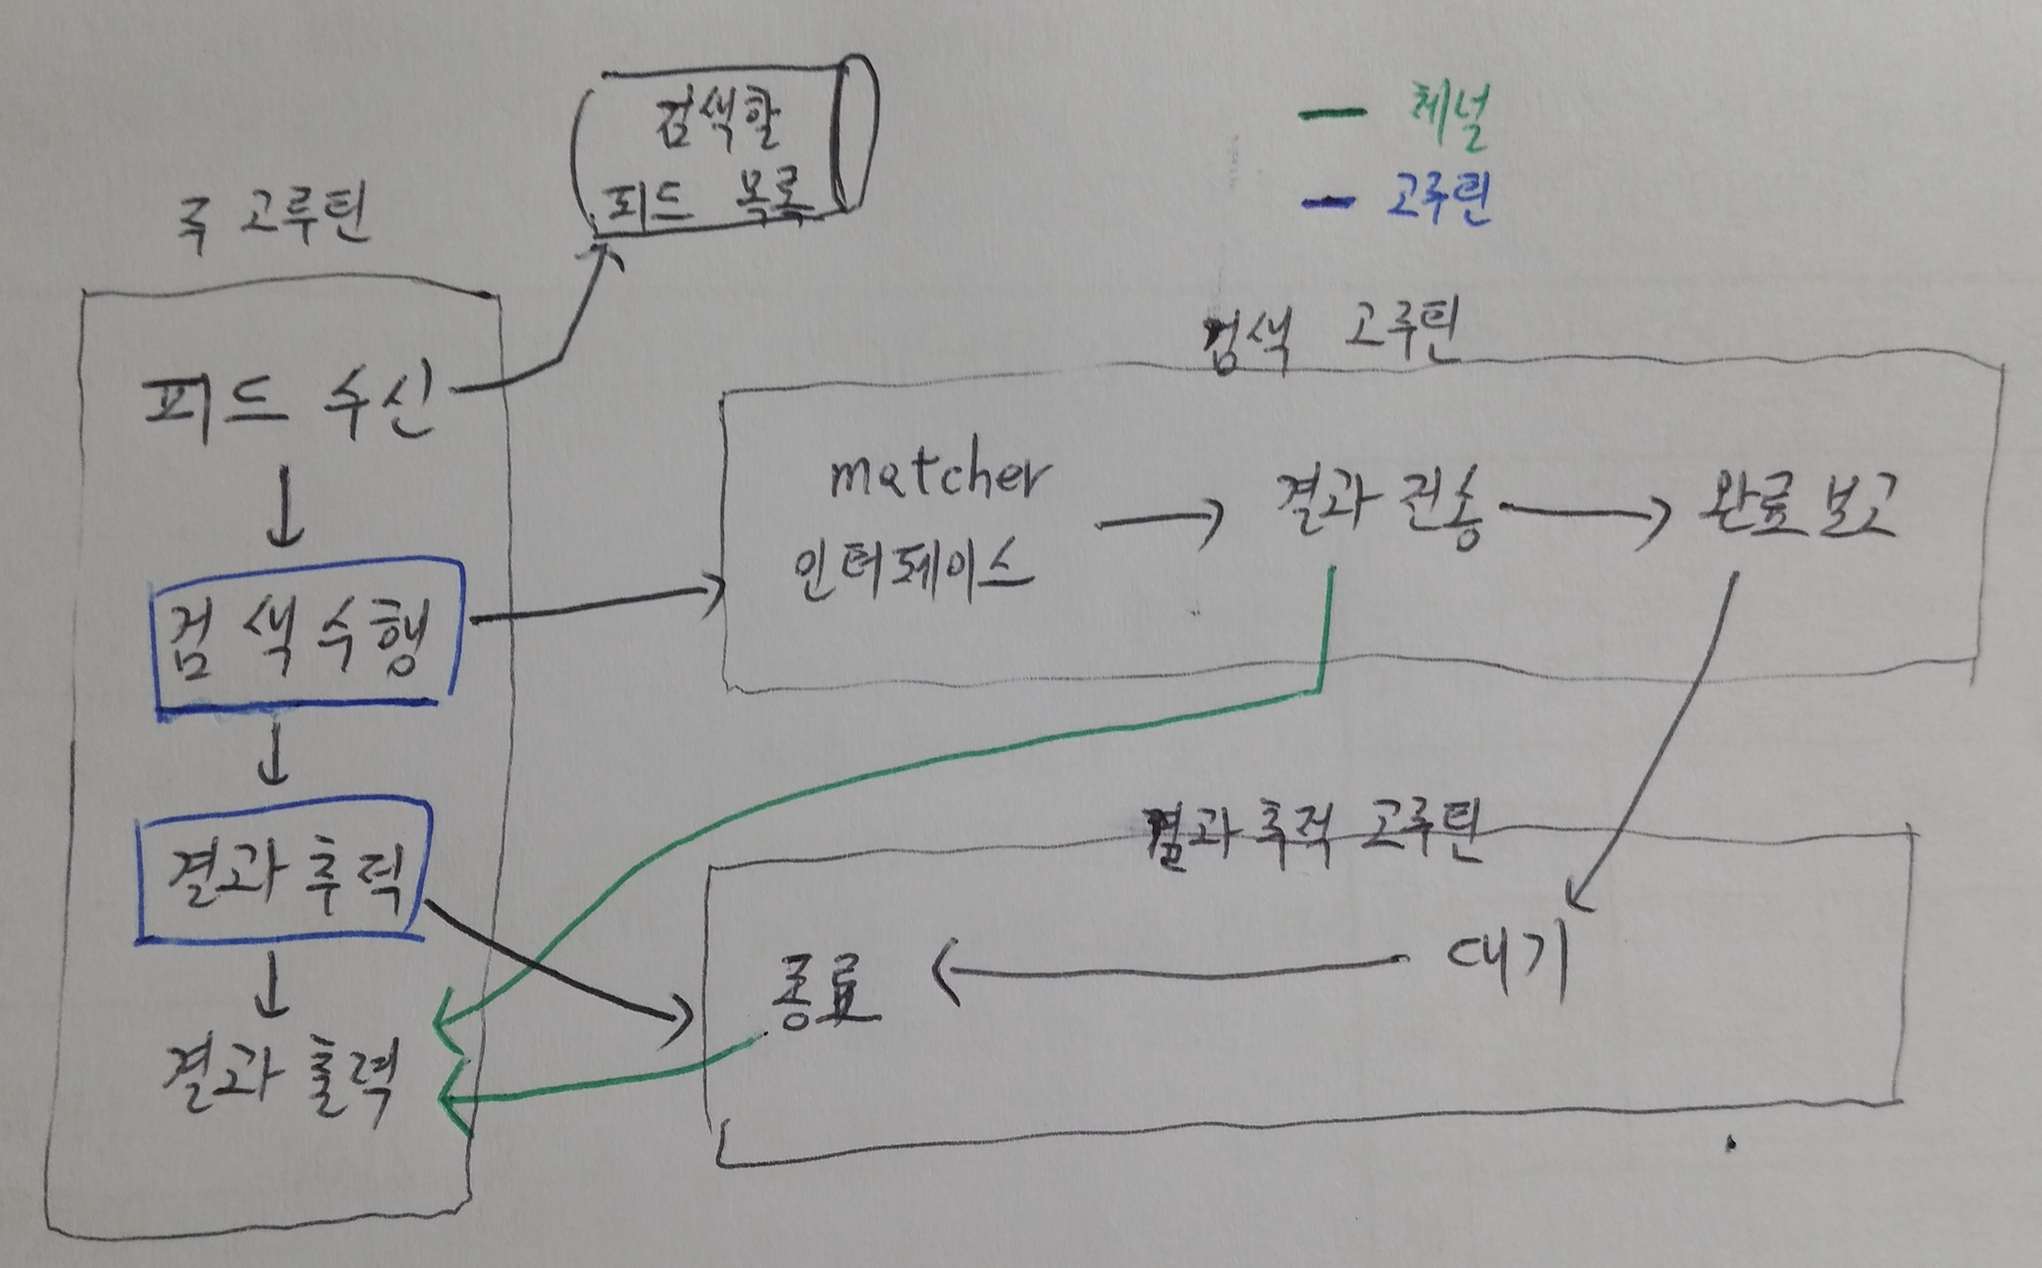 검색할
피드 목록
채널
고루틴
주 고루틴
피드 수신
검색수행
결과추적
결과출력
검색 고루틴
matcher
인터페이스
결과전송
완료보고
결과추적 고루틴
대기
종료